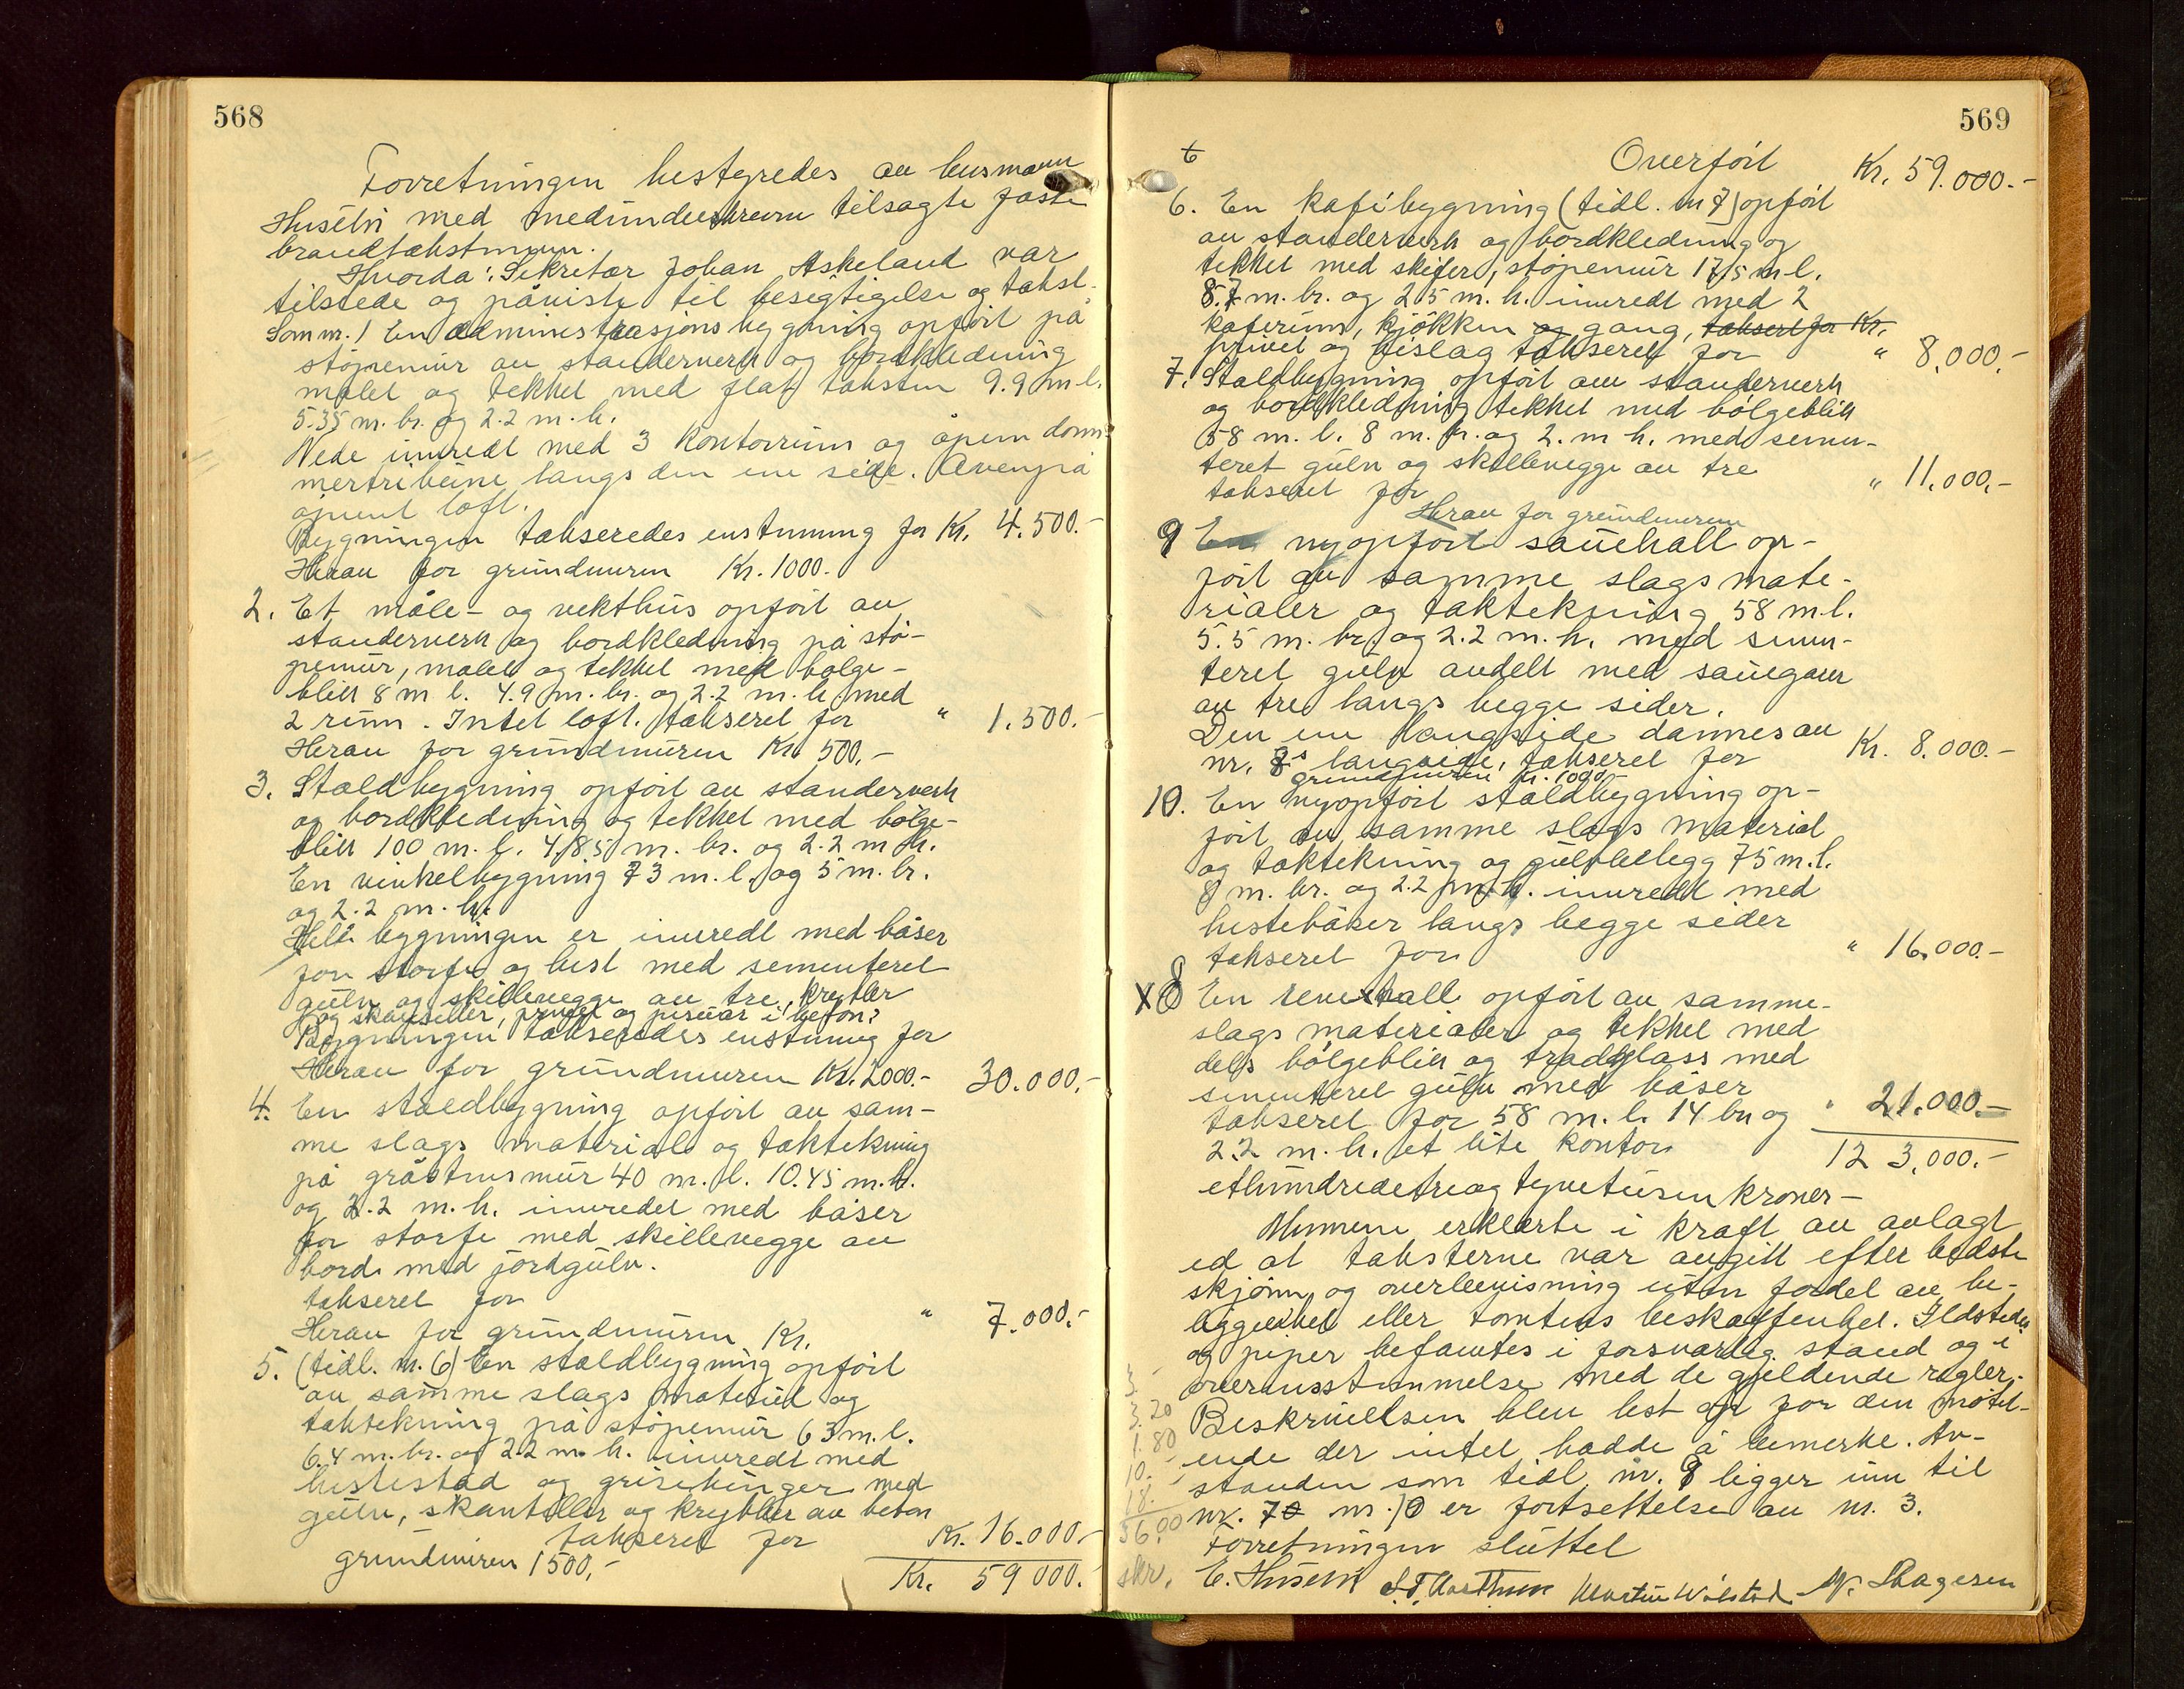 568
Forretningen bestyredes av lensmann
Husebø med medunderskrevne tilsagte faste
brandtakstmenn.
Hvorda: Sekretær Johan Askeland var
tilstede og påviste til besigtigelse og takst.
Som nr. 1 En administrasjonsbygning opført på
støpemur av standerverk og bordkledning
malet og tekket med flat taksten 9.9 m.l.
5.35 m. br. og 2.2 m. h.
Nede innredt med 3 kontorrum og åpen dom-
mertribune langs den ene side. Ovenpå
åpent loft.
Bygningen takseredes enstemmig for Kr. 4.500.-
Herav for grundmuren Kr. 1000.-
2. Et måle- og vekthus opført av
standerverk og bordkledning på stø-
pemur, malet og tekket med bølge-
blikk 8 m l. 4.9 m. br. og 2.2 m. h. med
2 rum. Intet loft. takseret for " 1.500.-
Herav for grundmuren Kr. 500,-
3. Staldbygning opført av standerverk
og bordkledning og tekket med bølge-
blikk 100 m. l. 4.85 m. br. og 2.2 m h.
En vinkelbygning 73 m. l. og 5 m. br.
og 2.2 m. h.
Hele bygningen er innredt med båser
for storfe og hest med sementeret
gulv og skillevegge av tre, krybber
og skantiller, privet og pissoar i beton.
Bygningen takseredes enstemmig for
Herav for grundmuren Kr. 2000.- 30.000.-
4. En staldbygning opført av sam-
me slags material og taktekning
på gråstensmur 40 m. l. 10.45 m. b.
og 2.2 m. h. innredet med båser
for storfe med skillevegge av
bord med jordgulv.
takseret for " 7.000.-
Herav for grundmuren Kr.
5. (tidl. nr. 6) En staldbygning opført
av samme slags material og
taktekning på støpemur 63 m. l.
6.4 m. br. og 2.2 m. h. innredt med
hestestad og grisebinger med
gulv, skantiller og krybber av beton
takseret for Kr. 16.000.-
grundmuren 1500,-
Kr. 59 000.-
569
Overført Kr. 59.000.-
6. En kafibygning (tidl. nr 7) opført
av standerverk og bordkledning og
tekket med skifer, støpemur 17.5 m l.
8.7 m. br. og 2.5 m. h. innredt med 2
kaferum, kjøkken og gang, takseret for Kr.
privet og bislag takseret for " 8.000.-
7. Staldbygning opført av standerverk
og bordkledning tekket med bølgeblikk
58 m. l. 8 m. br. og 2. m h. med semen-
teret gulv og skillevegge av tre
takseret for " 11.000.-
Herav for grundmuren
9 En nyopført sauehall op-
ført av samme slags mate-
rialer og taktekning 58 m.l.
5.5 m. br. og 2.2 m. h. med semen-
teret gulv avdelt med
av tre langs begge sider.
Den ene langside dannes av
nr. 7s langside, takseret for Kr. 8.000.-
grundmuren kr. 1000
10. En nyopført staldbygning op-
ført av samme slags material
og taktekning og gulvbelegg 75 m.l.
8 m. br. og 2.2 m. h. innredt med
hestebåser langs begge sider
takseret for " 16.000.-
X 8 En opført av samme
slags materialer og tekket med
dels bølgeblikk og trådglass med
sementeret gulv med båser
takseret for 58 m. l. 14 br. og " 21.000.-
2.2 m. h. et lite kontor. 123,000.-
ethundredetreogtyvetusen kroner-
Mennene erklærte i kraft av avlagt
ed at taksterne var avgitt efter bedste
skjønn og overbevisning uten fordel av be-
liggenhet eller tomtens beskaffenhet. Ildsteder
og piper befantes i forsvarlig stand og i
overensstemmelse med de gjeldende regler.
Beskrivelsen blev lest op for den møtt-
ende der intet hadde å bemerke. Av-
standen som tidl. nr. 9 ligger inn til
nr. 7 nr. 10 er fortsettelse av nr. 3.
Forretningen sluttet
3.20
1.80
10.
18.
36.00
skr.
E. Husebø Martin Wølstad